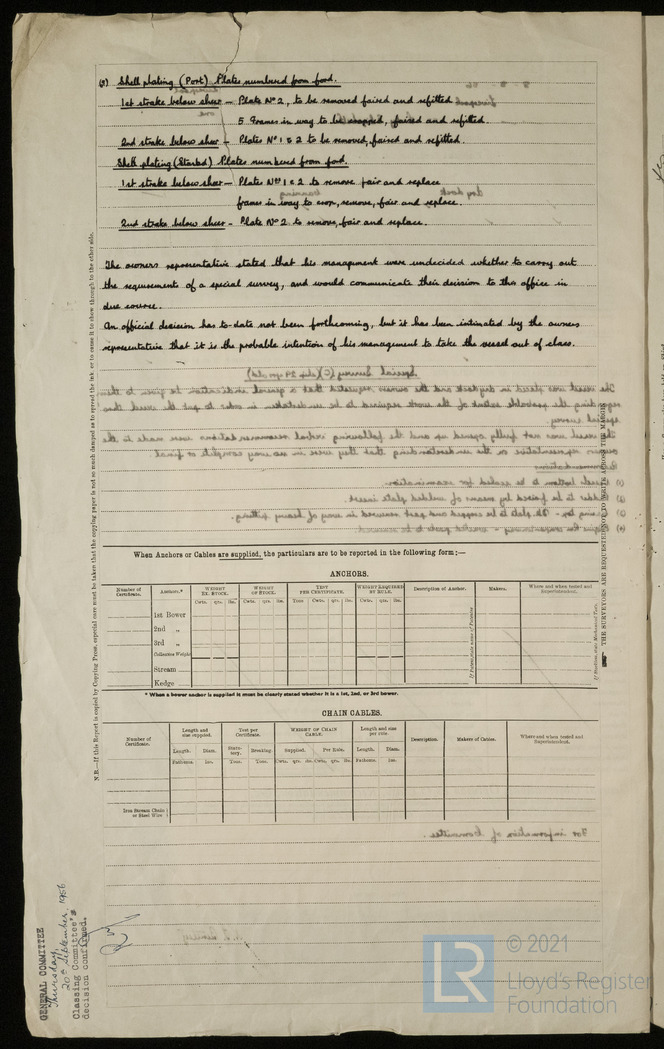 (5) Shell plating (Port) Plates numbered from ford.
1st strake below sheer - Plate No 2, to be removed faired and refitted
5 Frames in way to be cropped, faired and refitted.
2nd strake below sheer - Plates No 1 & 2 to be removed, faired and refitted.
Shell plating (Starbd) Plates numbered from ford.
1st strake below sheer - Plates Nos 1 & 2 to remove fair and replace
frames in way to crop, remove, fair and replace.
2nd strake below sheer - Plate No 2 to remove, fair and replace.
The owners representative stated that his management were undecided whether to carry out
the requirements of a special survey, and would communicate their decision to this office in
due course.
An official decision has to-date not been forthcoming, but it has been intimated by the owners
representative that it is the probable intention of his management to take the vessel out of class.
Special Survey
The vessel was placed in drydock and the owners requested that a general indication be given to them
regarding the probable extent of the work required to be undertaken in order to put the vessel thro
special survey.
The vessel was not fully opened up and the following verbal recommendations were made to the
owners representative on the understanding that they were in no way complete or final
Recommendations
When Anchors or Cables are supplied, the particulars are to be reported in the following form:—
ANCHORS.
Number of Certificate. Anchors.* WEIGHT EX. STOCK. WEIGHT OF STOCK. TEST PER CERTIFICATE. WEIGHT REQUIRED BY RULE. Description of Anchor. Makers. Where and when tested and Superintendent.
Cwts. qrs. lbs. Cwts. qrs. lbs. Tons Cwt. qrs. lbs. Cwts. qrs. lbs.
1st Bower
2nd "
3rd "
Collective Weight
Stream
Kedge
* When a bower anchor is supplied it must be clearly stated whether it is a 1st, 2nd, or 3rd bower.
CHAIN CABLES.
Number of Certificate. Length and size supplied. Test per Certificate. WEIGHT OF CHAIN CABLE. Length and size per rule. Description. Makers of Cables. Where and when tested and Superintendent.
Length. Diam. Statutory. Breaking. Supplied. Per Rule. Length. Diam.
Fathoms. Ins. Tons. Tons. Cwts. qrs. lbs. Cwts. qrs. lbs. Fathoms. Ins.
Iron Stream Chain or Steel Wire
For information of Committee.
N.B.—If this Report is copied by Copying Press, especial care must be taken that the copying paper is not so much damped as to spread the ink, or to cause it to show through to the other side.
THE SURVEYORS ARE REQUESTED NOT TO WRITE ACROSS THE MARGIN
GENERAL COMMITTEE
Thursday,
20th September, 1956
Classing Committee's
decision confirmed.
LR © 2021
Lloyd's Register
Foundation